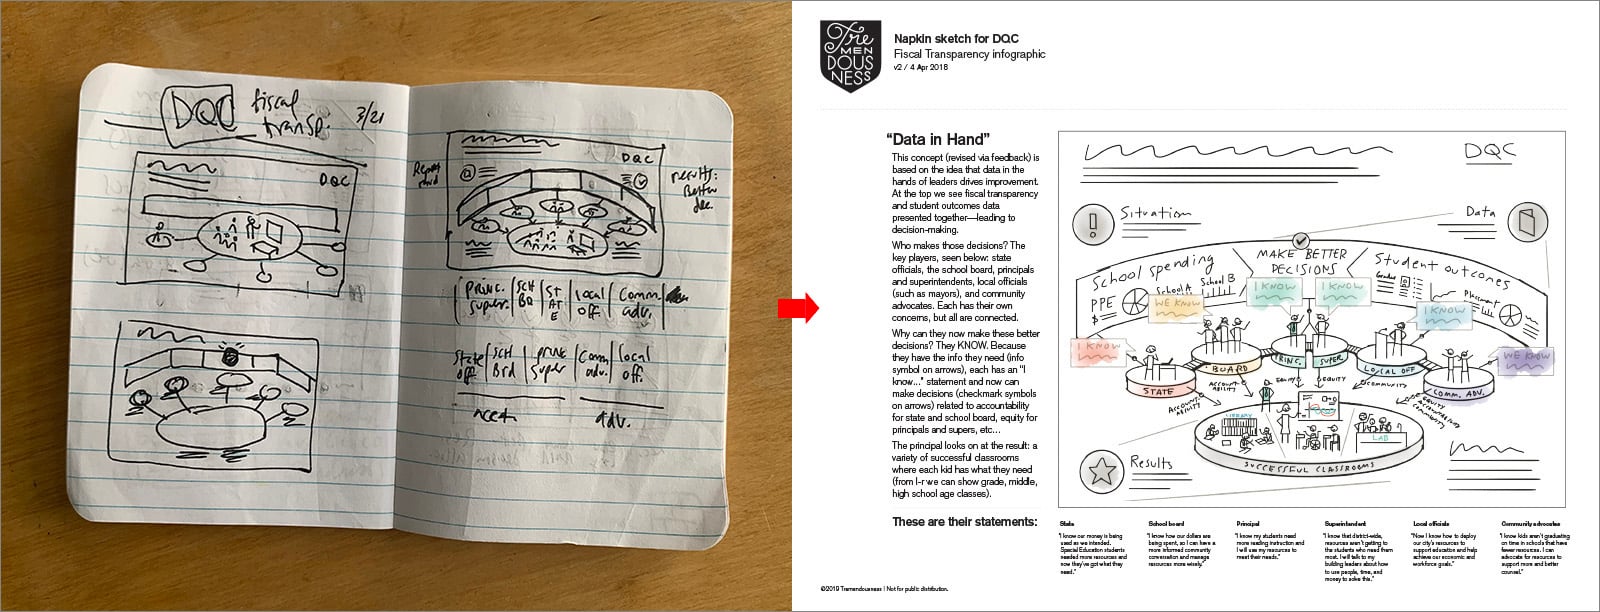 DQC
fiscal
transp.
3/21
DQC
Report
card
DQC
results:
Better
dec.
princ.
super.
SCH
BD
ST
AT
E
local
off.
Comm.
adv.
State
off.
SCH
Brd
princ
super
Comm
adv.
local
off.
need
adv.
Tre
MEN
DOUS
NESS
Napkin sketch for DQC
Fiscal Transparency infographic
v2 / 4 Apr 2018
“Data in Hand”
This concept (revised via feedback) is
based on the idea that data in the
hands of leaders drives improvement.
At the top we see fiscal transparency
and student outcomes data
presented together—leading to
decision-making.
Who makes those decisions? The
key players, seen below: state
officials, the school board, principals
and superintendents, local officials
(such as mayors), and community
advocates. Each has their own
concerns, but all are connected.
Why can they now make these better
decisions? They KNOW. Because
they have the info they need (info
symbol on arrows), each has an “I
know...” statement and now can
make decisions (checkmark symbols
on arrows) related to accountability
for state and school board, equity for
principals and supers, etc...
The principal looks on at the result: a
variety of successful classrooms
where each kid has what they need
(from l-r we can show grade, middle,
high school age classes).
These are their statements:
DQC
Situation
Data
School spending
MAKE BETTER
DECISIONS
Student outcomes
PPE
$
School A
School B
Grades
Placement
I KNOW
WE KNOW
I KNOW
I KNOW
I KNOW
WE KNOW
STATE
BOARD
PRINC.
SUPER
LOCAL OFF
COMM. ADV.
ACCOUNT-
ABILITY
ACCOUNT-
ABILITY
EQUITY
EQUITY
COMMUNITY
EQUITY
ACCOUNTABILITY
COMMUNITY
LIBRARY
LAB
SUCCESSFUL CLASSROOMS
Results
State
“I know our money is being
used as we intended.
Special Education students
needed more resources and
now they’ve got what they
need.”
School board
“I know how our dollars are
being spent, so I can have a
more informed community
conversation and manage
resources more wisely.”
Principal
“I know my students need
more reading instruction and
I will use my resources to
meet their needs.”
Superintendent
“I know that district-wide,
resources aren’t getting to
the students who need them
most. I will talk to my
building leaders about how
to use people, time, and
money to solve this.”
Local officials
“Now I know how to deploy
our city’s resources to
support education and help
achieve our economic and
workforce goals.”
Community advocates
“I know kids aren’t graduating
on time in schools that have
fewer resources. I can
advocate for resources to
support more and better
counsel.”
©2019 Tremendousness | Not for public distribution.